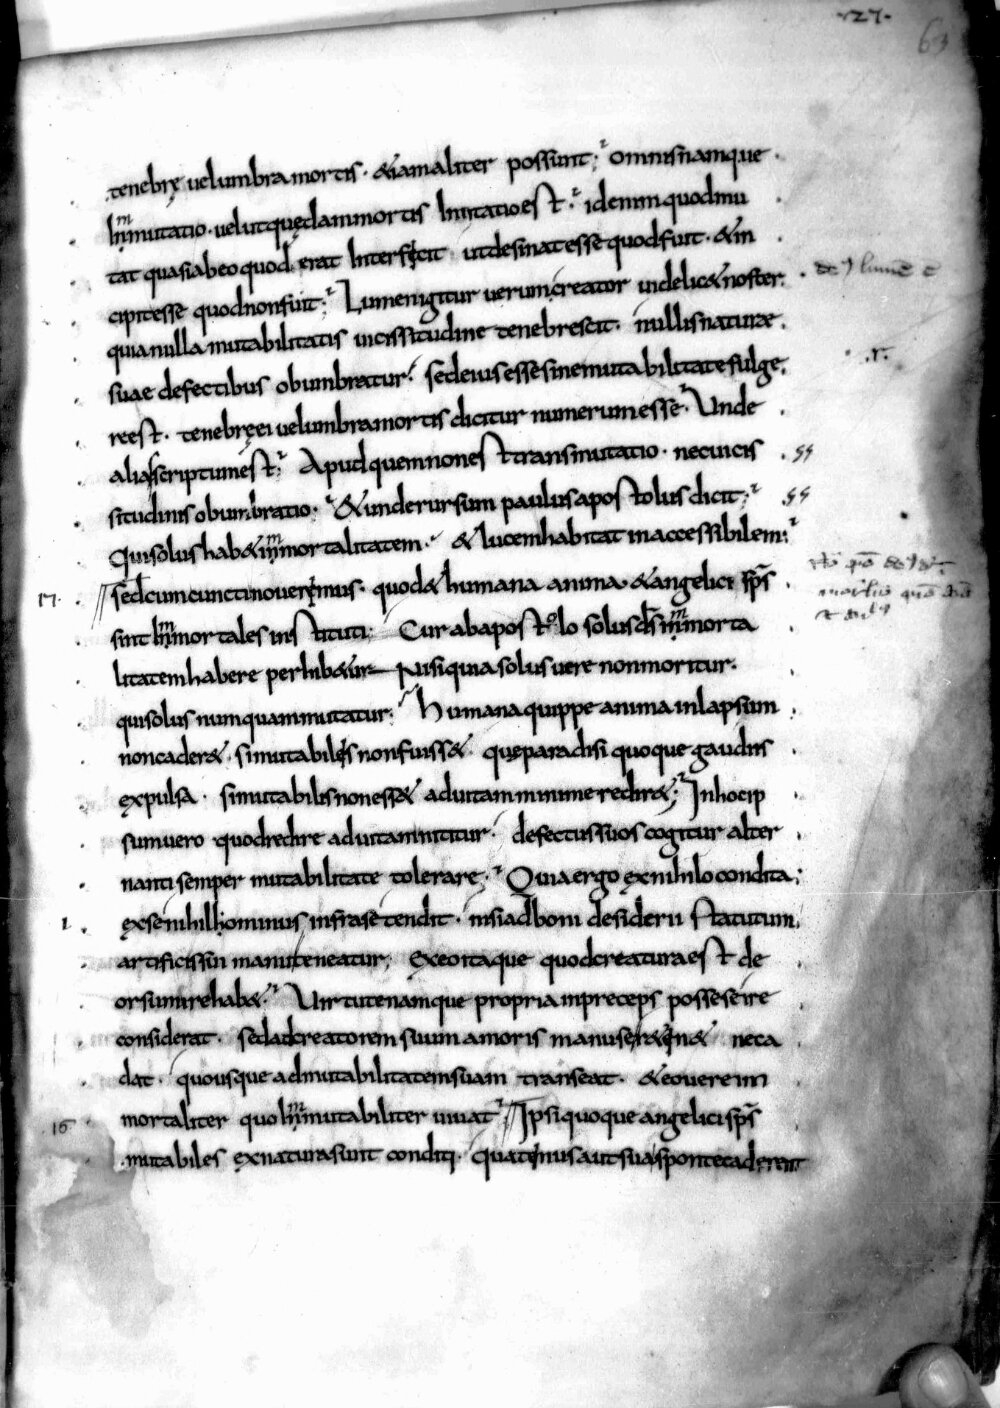 ·27·
63
tenebrę uel umbra mortis· & iam aliter possunt; omnis namque
Inmutatio· uelut quędam mortis Imitatio est· idenim quod mu
tat quasi ab eo quod erat Interficit ut desinat esse quod fuit· & in
cipit esse quod non fuit; Lumen igitur uerum creator uidelic& noster
quia nulla mutabilitatis uicissitudine tenebrescit· nullis naturae
suae defectibus obumbratur· sed eius esse sine mutabilitate fulge
re est· tenebrę ei uel umbra mortis dicitur numerum esse· Unde
alias scriptum est; Apud quem non est transmutatio· nec uicis
situdinis obumbratio· & unde rursum paulus apostolus dicit;
Qui solus hab& inmortalitatem· & lucem habitat inaccessibilem;
17· sed cum cuncti nouerimus· quod & humana anima & angelici sp̄s
sint Inmortales instituti; Cur ab apostolo solus d̄s inmorta
litatem habere perhib&ur Nisi quia solus uere non moritur·
qui solus numquam mutatur; Humana quippe anima in lapsum
non cader&· si mutabilis non fuiss&· quę paradisi quoque gaudiis
expulsa· si mutabilis non ess& ad uitam minime redir&; In hoc ip
sum uero quod redire ad uitam nititur· defectus suos cogitur alter
nanti semper mutabilitate tolerare; Quia ergo ex nihilo condita
ex se nihilhominus infra se tendit· nisi ad boni desiderii statutum
artificis sui manu teneatur; Ex eo itaque quod creatura est de
orsum ire hab&· Uirtute namque propria in preceps posse se ire
considerat· sed ad creatorem suum amoris manu se r&in& ne ca
dat· quousque ad mutabilitatem suam transeat· & eo uere in
mortaliter quo Inmutabiliter uiuat Ipsi quoque angelici sp̄s
16
mutabiles ex natura sunt conditi· quatinus aut sua sponte caderent